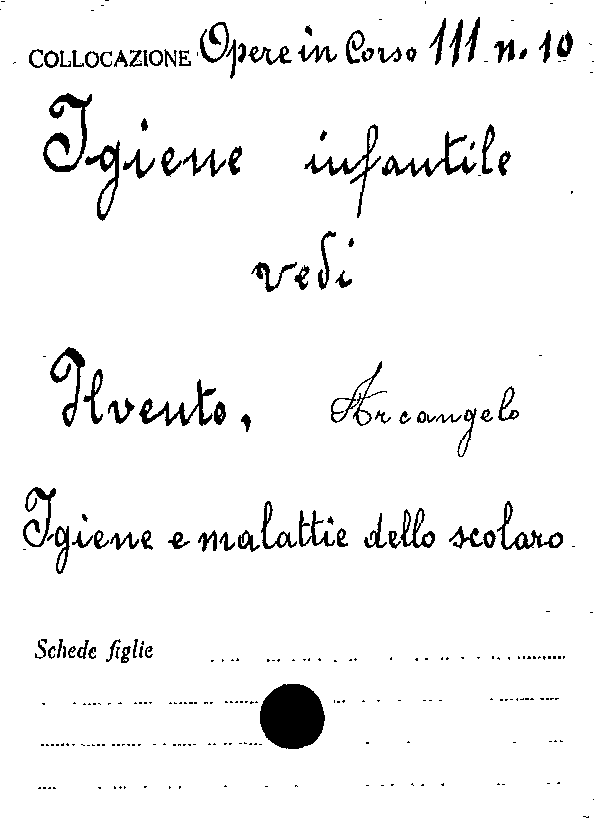 COLLOCAZIONE Opere in Corso 111 n. 10
Igiene infantile
vedi
Ilvento, Arcangelo
Igiene e malattie dello scolaro
Schede figlie